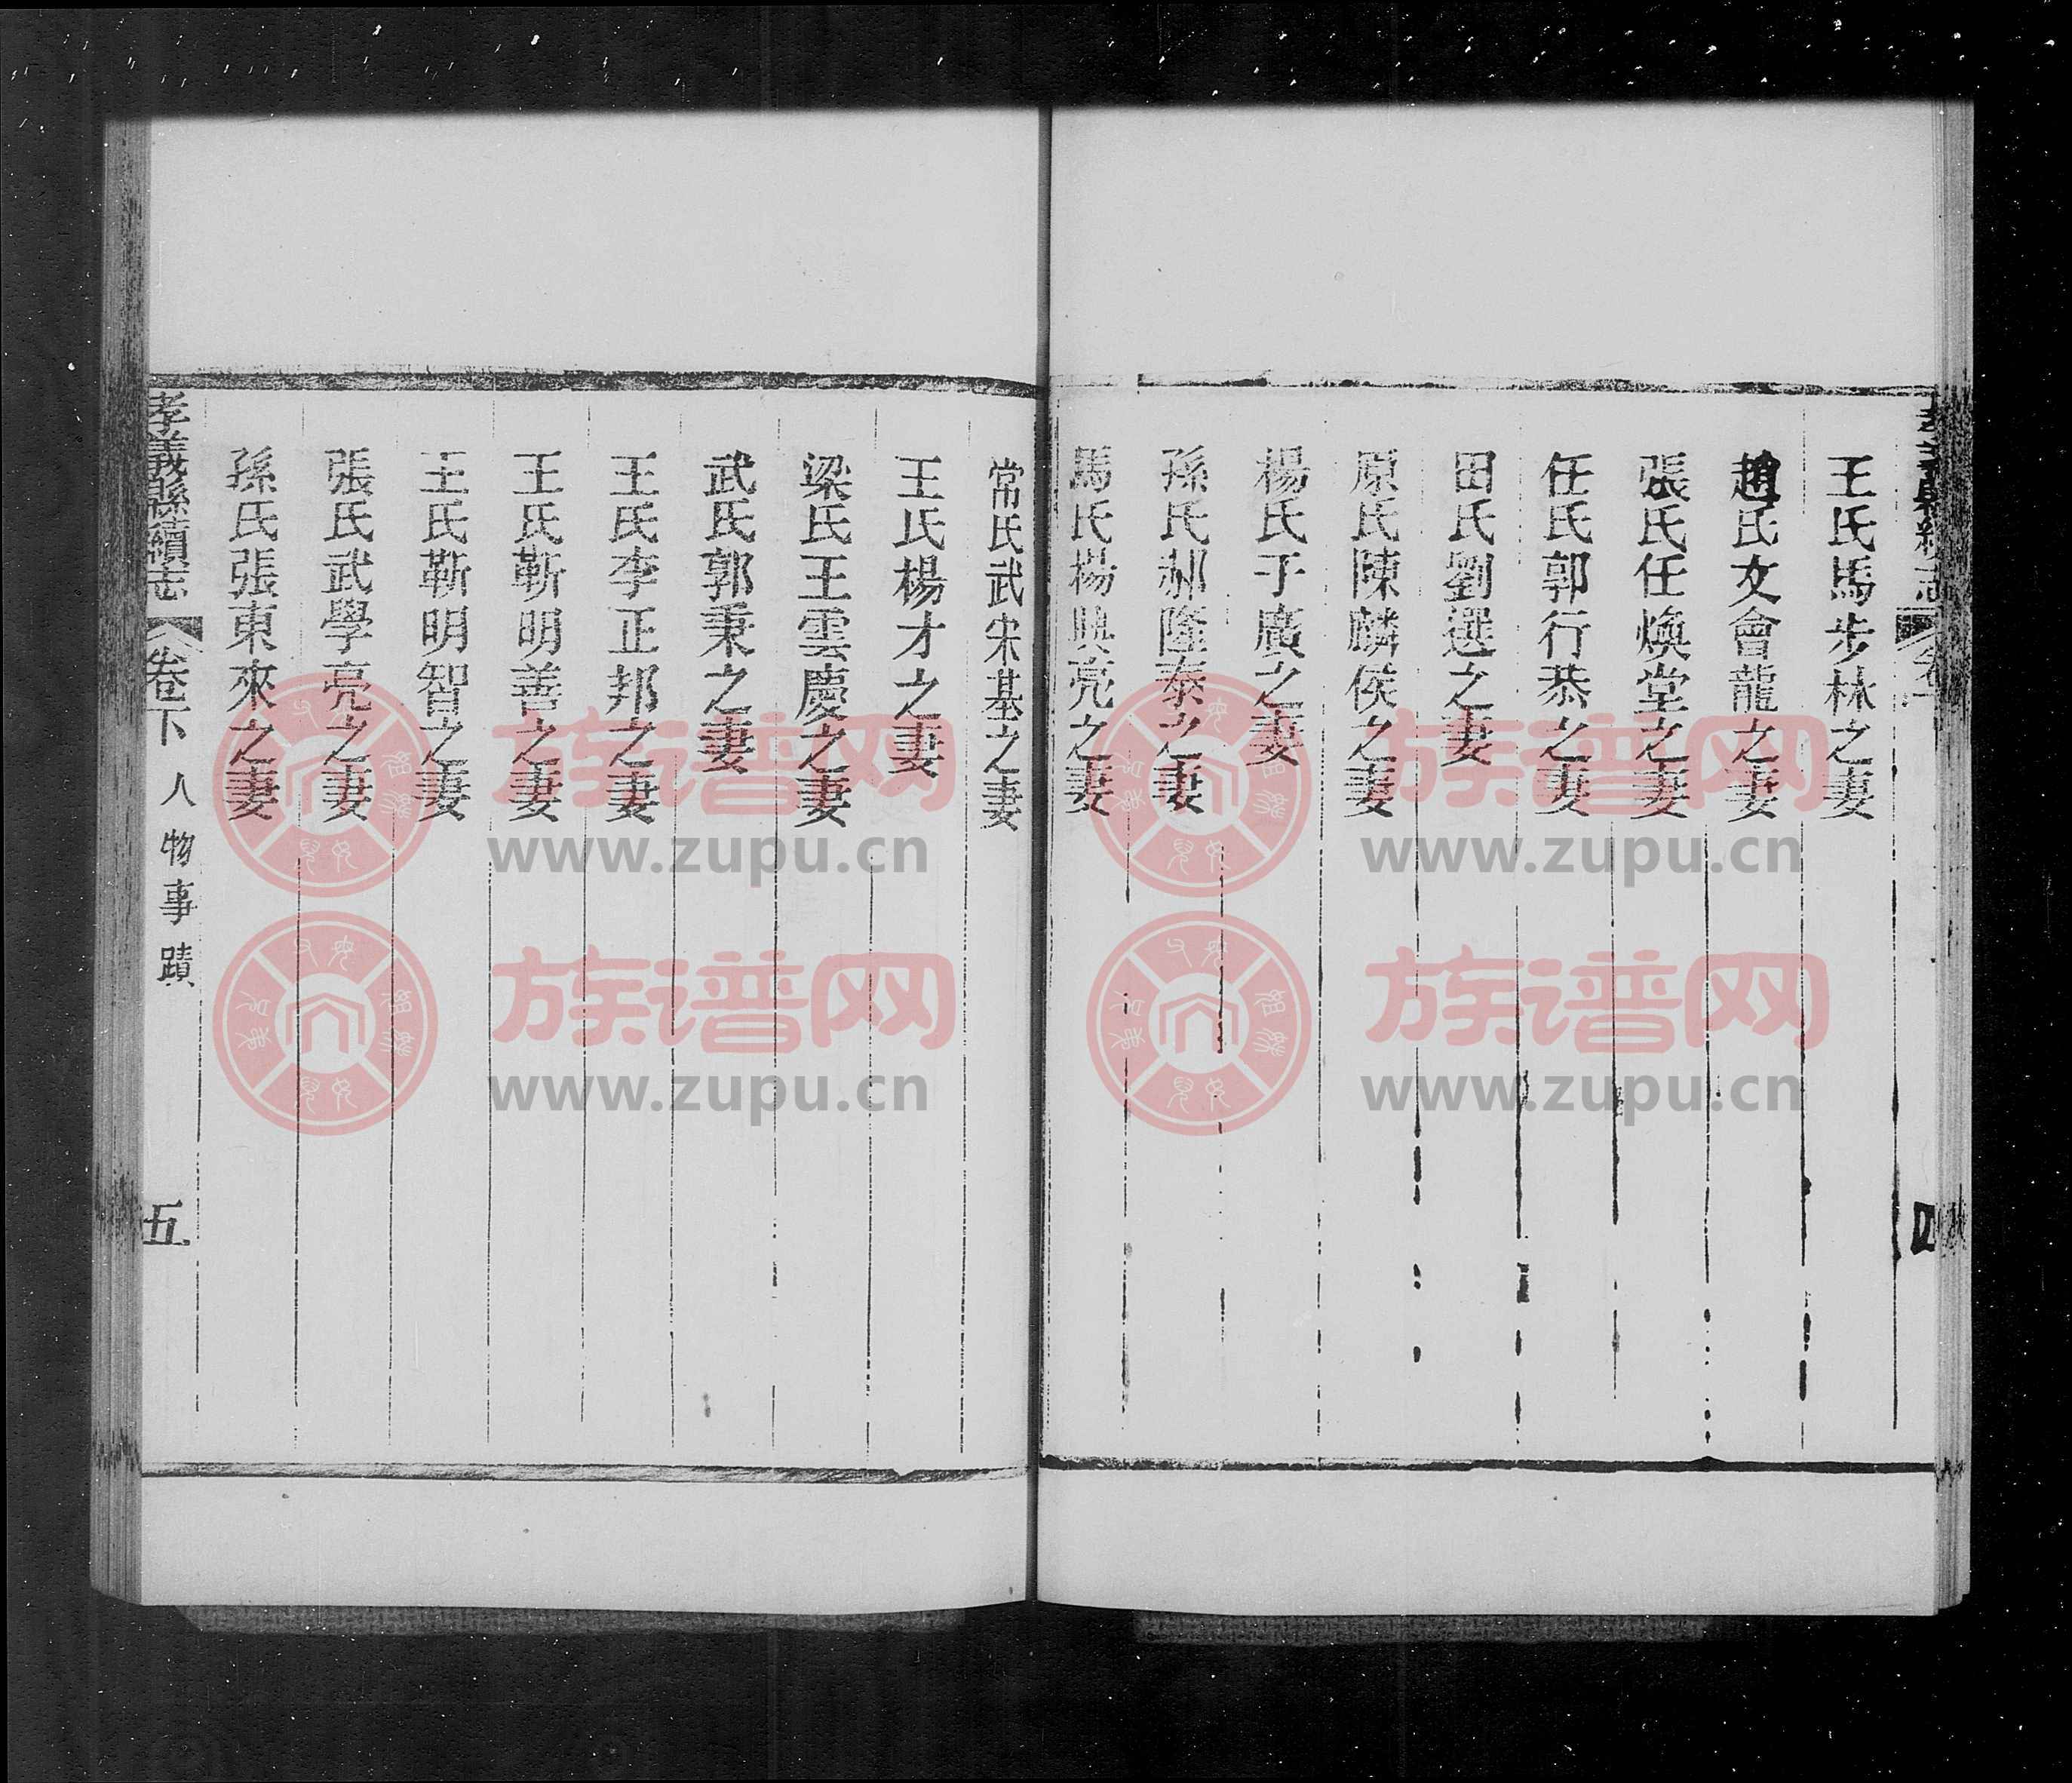 王氏馬步林之妻
趙氏文會龍之妻
張氏任煥堂之妻
任氏郭行恭之妻
田氏劉選之妻
原氏陳麟侯之妻
楊氏于廣之妻
孫氏郝隆泰之妻
馬氏楊興亮之妻
常氏武宋基之妻
王氏楊才之妻
梁氏王雲慶之妻
武氏郭秉之妻
王氏李正邦之妻
王氏靳明善之妻
王氏靳明智之妻
張氏武學亮之妻
孫氏張東來之妻
孝義縣續志 卷下 人物事蹟 五
族谱网
www.zupu.cn
族谱网
www.zupu.cn
族谱网
www.zupu.cn
族谱网
www.zupu.cn